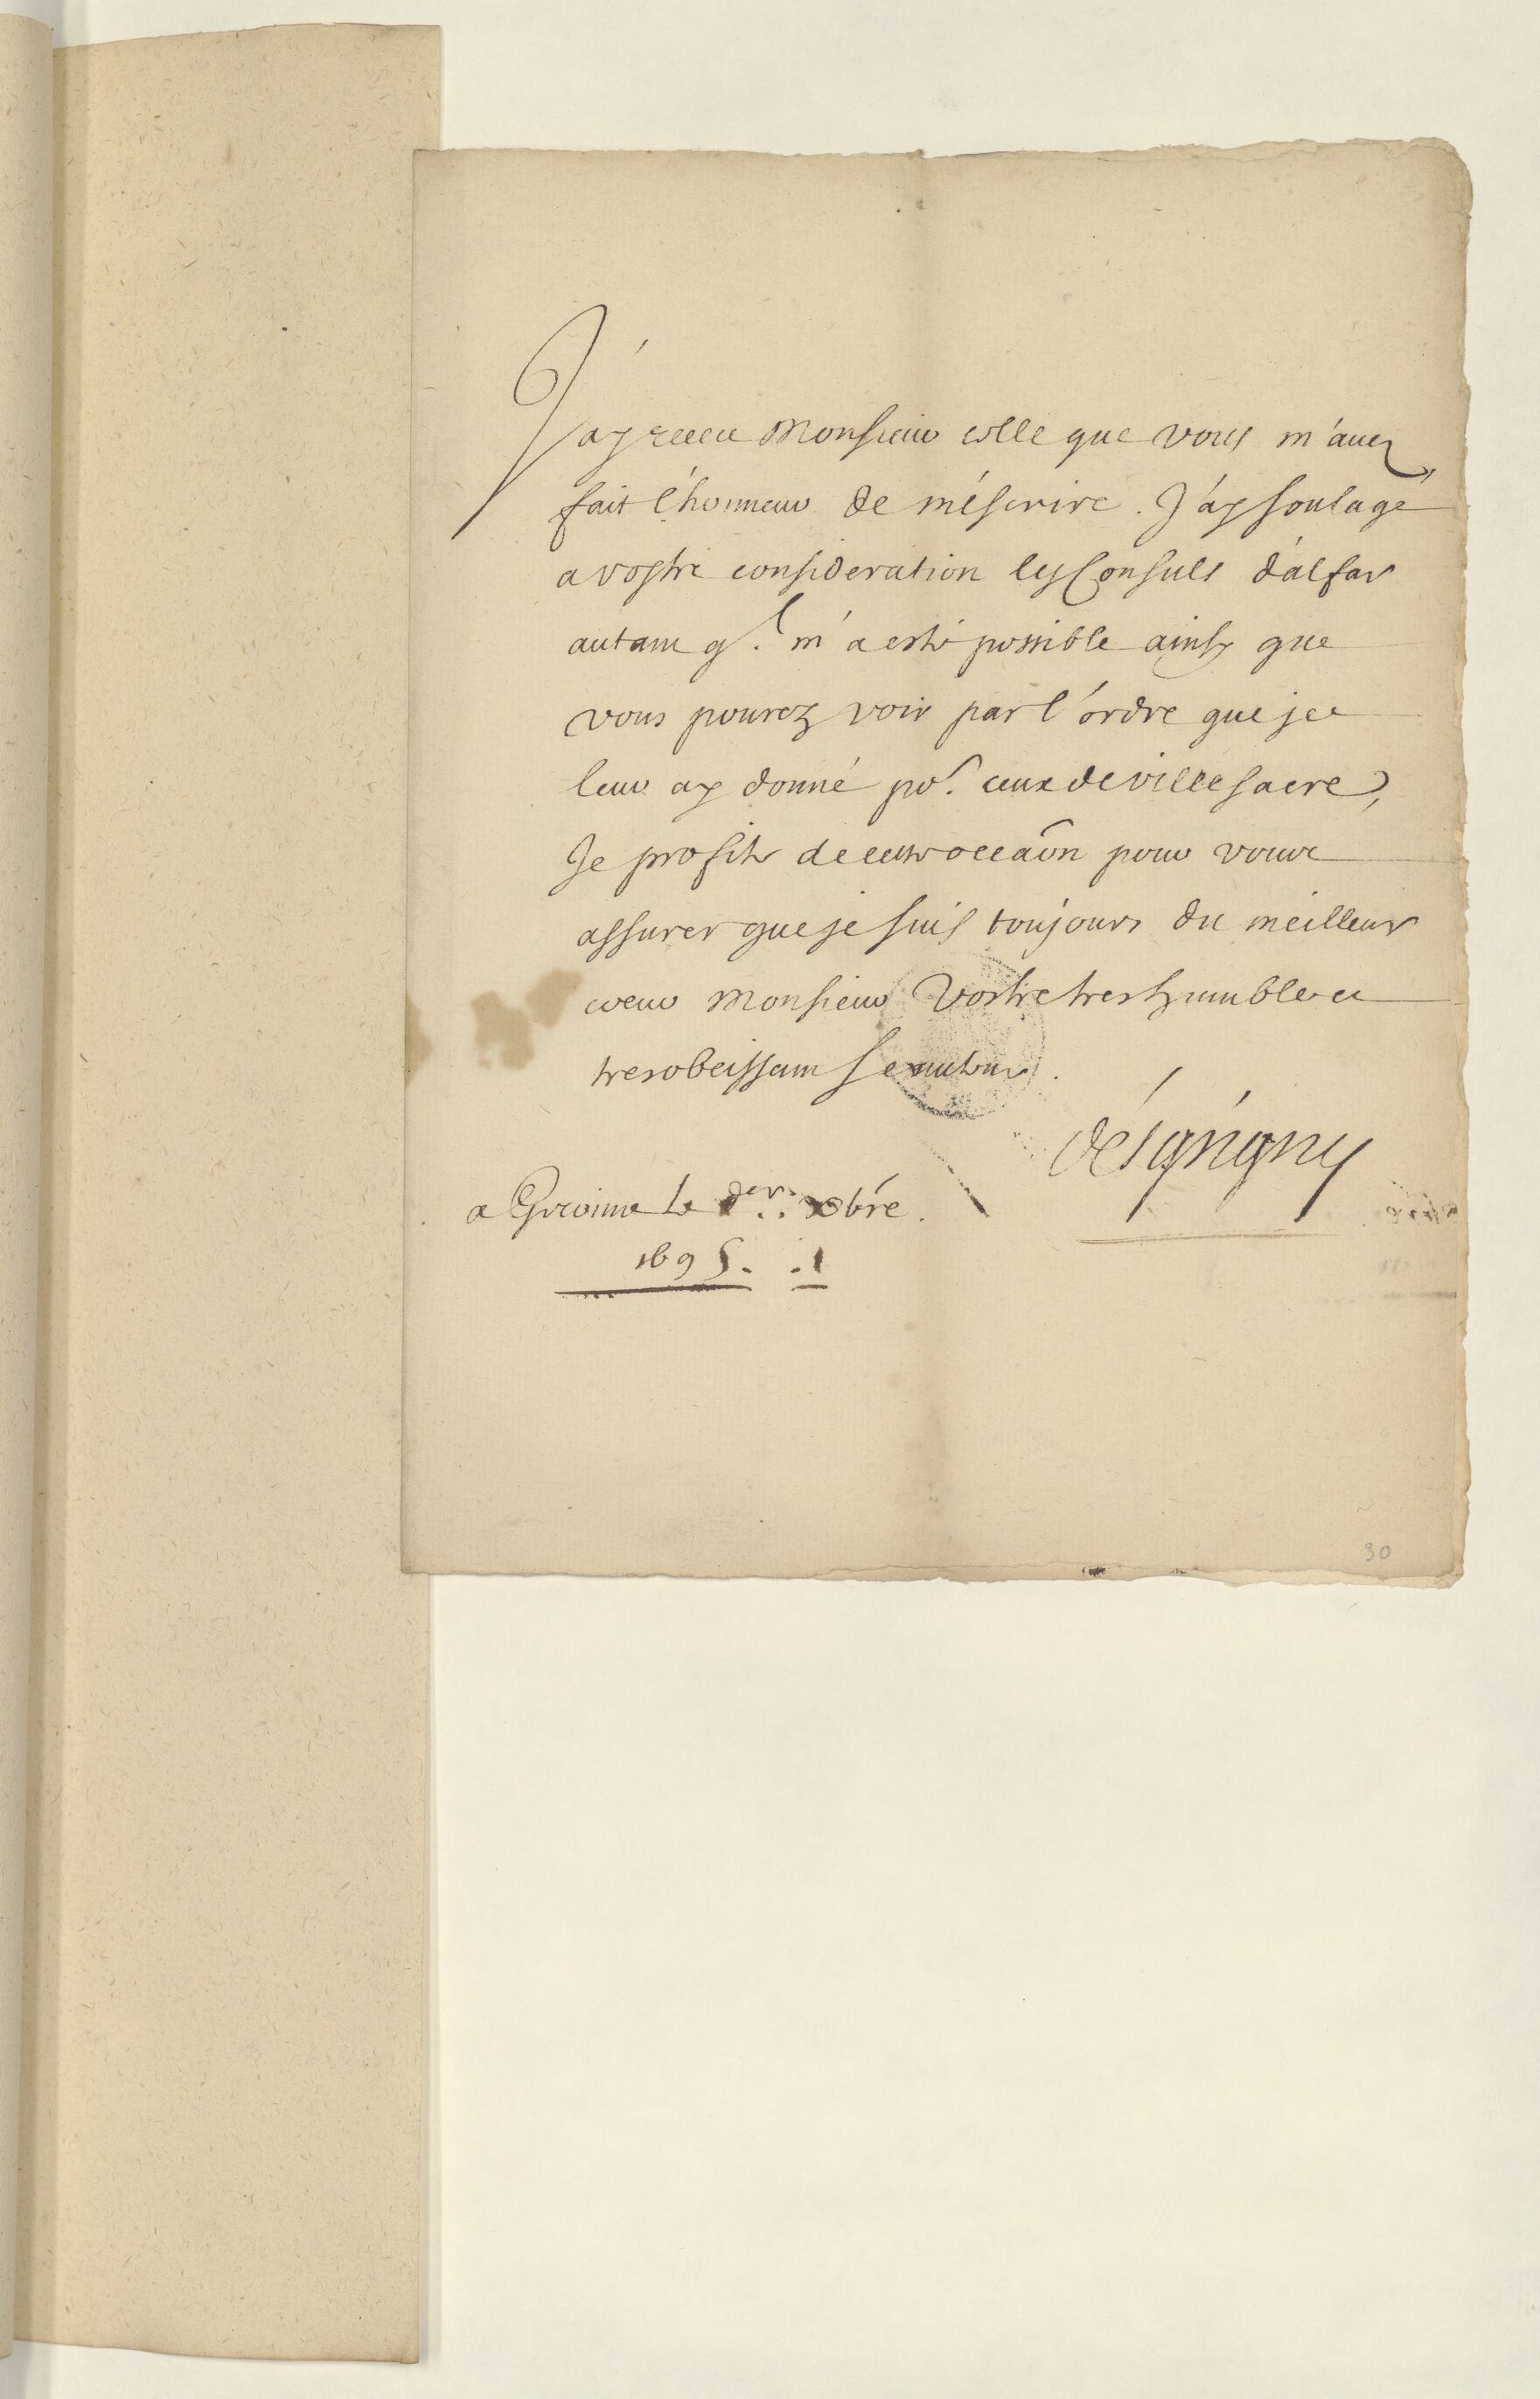 J'ay receu Monsieur celle que vous m'avez
fait l'honneur de m'escrire. J'ay soulagé
a vostre consideration les Consuls d'alfar
autant ql. m'a esté possible ainsy que
vous pourez voir par l'ordre que je
leur ay donné por. ceux de villesacre,
Je profite de cette occaōn pour vous
assurer que je suis toujours du meilleur
coeur Monsieur Vostre tres humble et
tresobeissant Serviteur.
a le der. xbre.
1695.
30